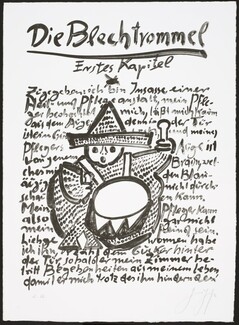 Die Blechtrommel
Erstes Kapitel
Zugegeben: ich bin Insasse einer
Heil- und Pflegeanstalt, mein Pfle-
ger beobachtet mich, läßt mich kaum
aus dem Auge; denn in der Tür
ist ein Gu und meines
Pflegers Auge ist
von jenem Braun, wel-
ches den Blau-
äugig mich durch-
schau kann.
Mein Pfleger kann
also gar nicht
mein sein.
Liebge wonnen habe
ich ihn, erzähl dem Gucker hinter
der Tür, sobald er mein Zimmer be-
tritt Begebenheiten aus meinem Leben,
damit er mich trotz des ihn hindernden